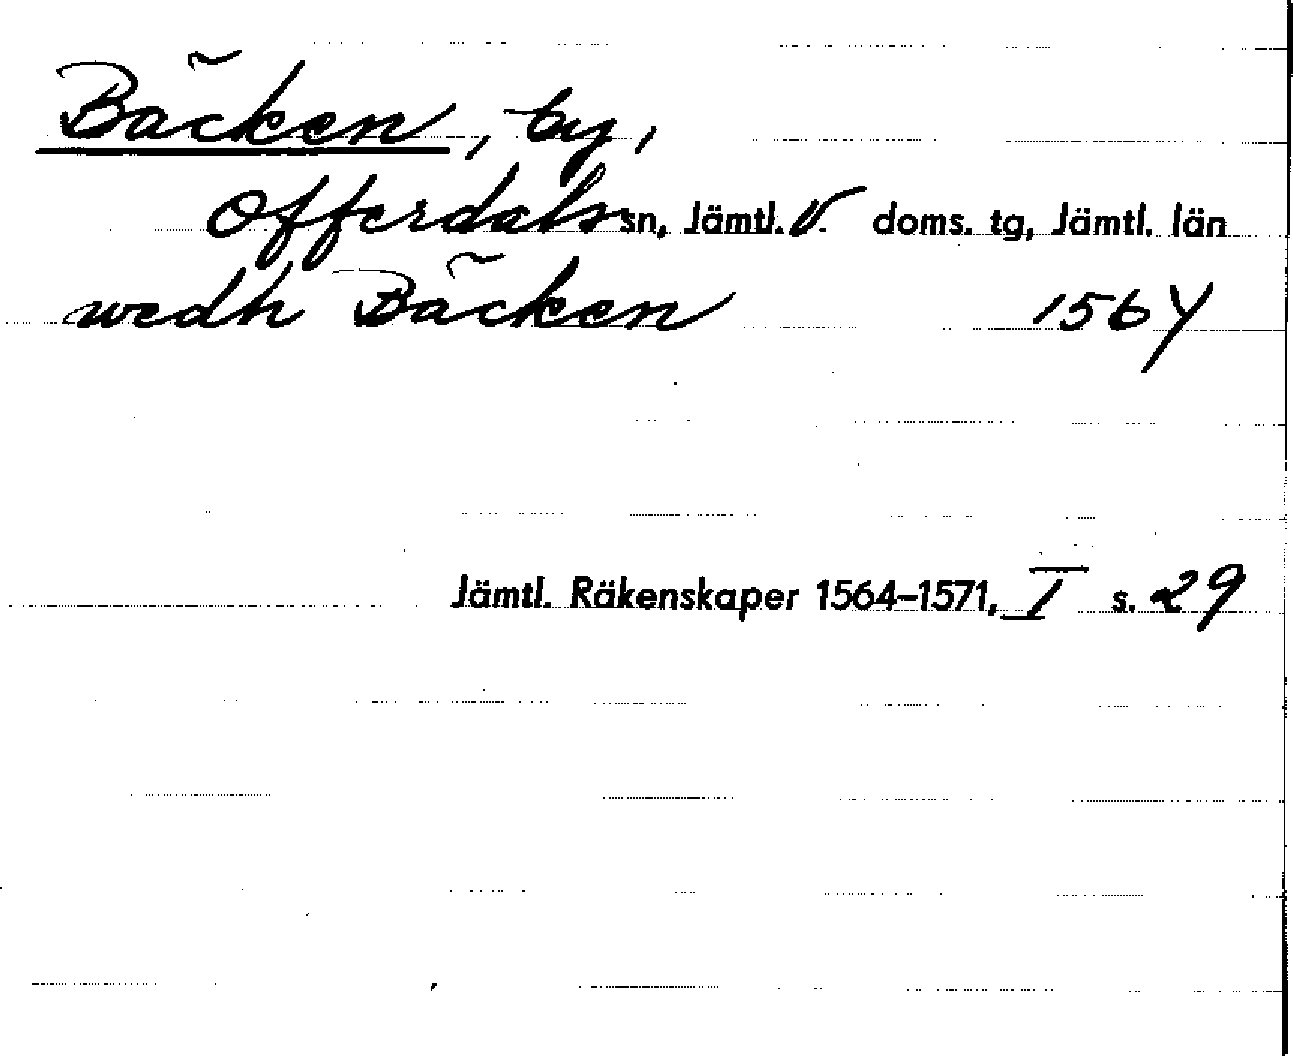 Bäcken, by,
Offerdals sn, Jämtl. V. doms. tg, Jämtl. län
wedh Bäcken 1564
Jämtl. Räkenskaper 1564–1571, I s. 29